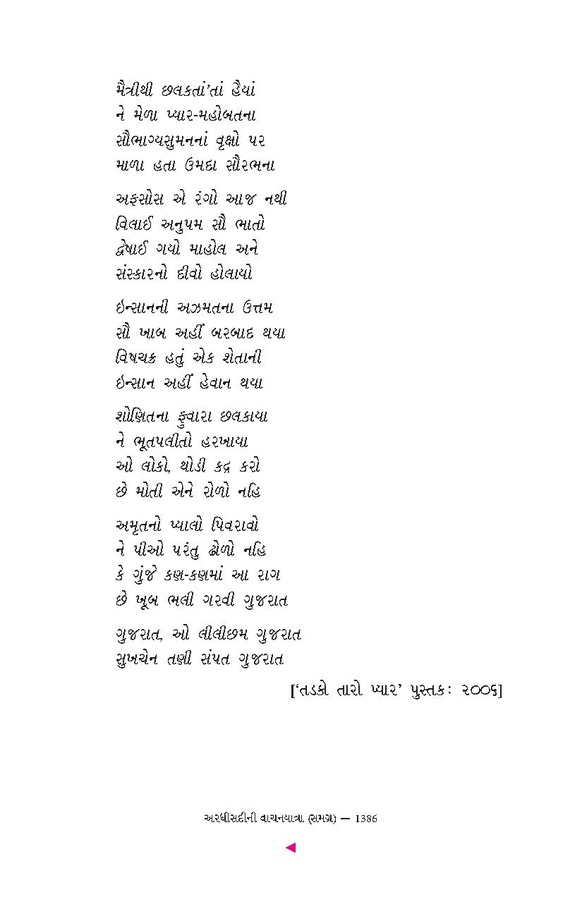 મૈત્રીથી છલકતાં'તાં હૈયાં
ને મેળા પ્યાર-મહોબતના
સૌભાગ્યસુમનનાં વૃક્ષો પર
માળા હતા ઉમદા સૌરભના
અફસોસ એ રંગો આજ નથી
વિલાઈ અનુપમ સૌ ભાતો
દ્વેષાઈ ગયો માહોલ અને
સંસ્કારનો દીવો હોલાયો
ઇન્સાનની અઝમતના ઉત્તમ
સૌ ખાબ અહીં બરબાદ થયા
વિષચક્ર હતું એક શેતાની
ઇન્સાન અહીં હેવાન થયા
શોણિતના ફુવારા છલકાયા
ને ભૂતપલીતો હરખાયા
ઓ લોકો, થોડી કદ્ર કરો
છે મોતી એને રોળો નહિ
અમૃતનો પ્યાલો પિવરાવો
ને પીઓ પરંતુ ઢોળો નહિ
કે ગુંજે કણ-કણમાં આ રાગ
છે ખૂબ ભલી ગરવી ગુજરાત
ગુજરાત, ઓ લીલીછમ ગુજરાત
સુખચેન તણી સંપત ગુજરાત
['તડકો તારો પ્યાર' પુસ્તક: ૨૦૦૬]
અરધીસદીની વાચનયાત્રા (સમગ્ર) — 1386